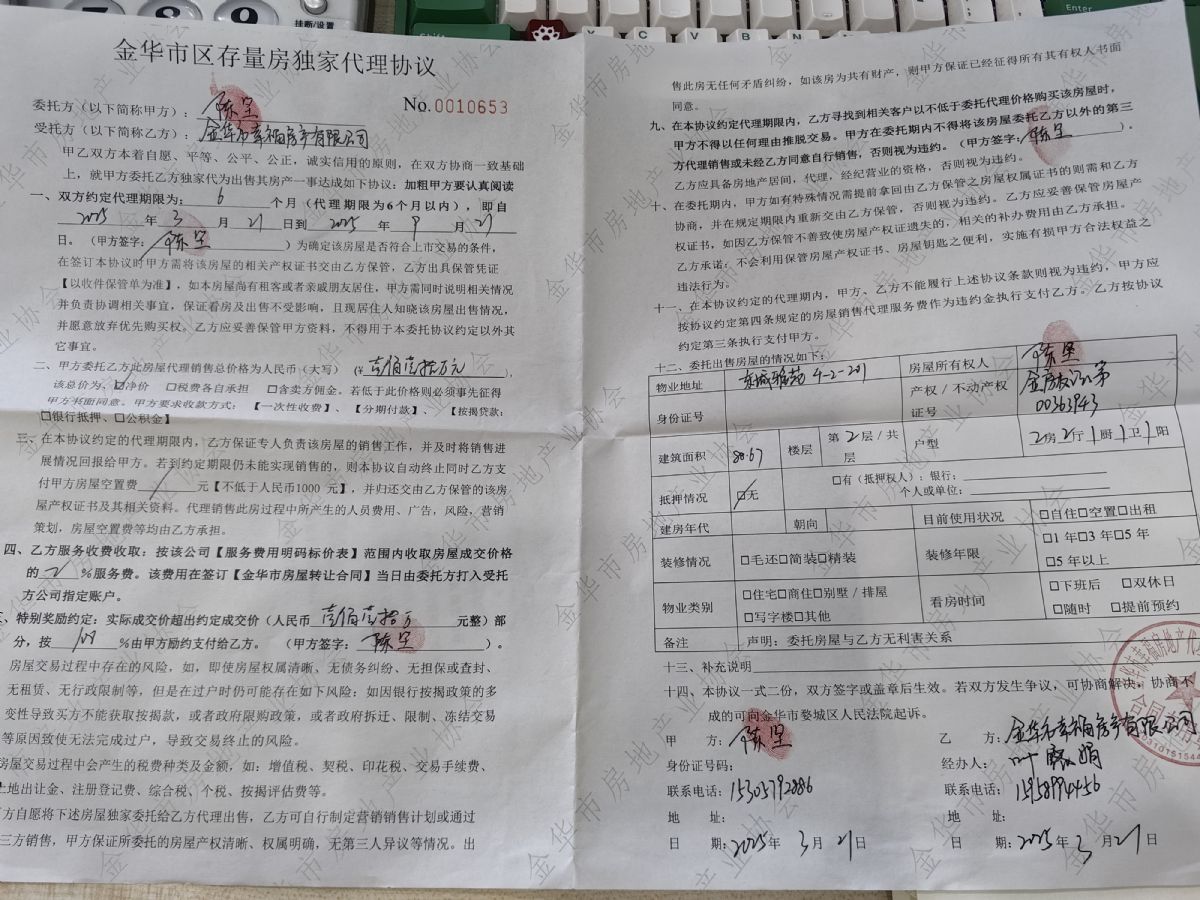 金华市区存量房独家代理协议
No.0010653
委托方（以下简称甲方）：陈坚
受托方（以下简称乙方）：金华市幸福房产有限公司
甲乙双方本着自愿、平等、公平、公正，诚实信用的原则，在双方协商一致基础
上，就甲方委托乙方独家代为出售其房产一事达成如下协议：加粗甲方要认真阅读
一、双方约定代理期限为：6个月（代理期限为6个月以内），即自
2025年3月21日到2025年9月21
日。（甲方签字：陈坚）为确定该房屋是否符合上市交易的条件，
在签订本协议时甲方需将该房屋的相关产权证书交由乙方保管，乙方出具保管凭证
【以收件保管单为准】，如本房屋尚有租客或者亲戚朋友居住，甲方需同时说明相关情况
并负责协调相关事宜，保证看房及出售不受影响，且现居住人知晓该房屋出售情况，
并愿意放弃优先购买权。乙方应妥善保管甲方资料，不得用于本委托协议约定以外其
它事宜。
二、甲方委托乙方此房屋代理销售总价格为人民币（大写）（¥壹佰壹拾万元），
该总价为，☑净价 □税费各自承担 □含卖方佣金。若低于此价格则必须事先征得
甲方书面同意。甲方要求收款方式：【一次性收费】、【分期付款】、【按揭贷款：
□银行抵押、□公积金】
三、在本协议约定的代理期限内，乙方保证专人负责该房屋的销售工作，并及时将销售进
展情况回报给甲方。若到约定期限仍未能实现销售的，则本协议自动终止同时乙方支
付甲方房屋空置费 / 元【不低于人民币1000 元】，并归还交由乙方保管的该房
屋产权证书及其相关资料。代理销售此房过程中所产生的人员费用、广告，风险，营销
策划，房屋空置费等均由乙方承担。
四、乙方服务收费收取：按该公司【服务费用明码标价表】范围内收取房屋成交价格
的2%服务费。该费用在签订【金华市房屋转让合同】当日由委托方打入受托
方公司指定账户。
、特别奖励约定：实际成交价超出约定成交价（人民币壹佰壹拾万元整）部
分，按100%由甲方励约支付给乙方。（甲方签字：陈坚）。
房屋交易过程中存在的风险，如，即使房屋权属清晰、无债务纠纷、无担保或查封、
无租赁、无行政限制等，但是在过户时仍可能存在如下风险：如因银行按揭政策的多
变性导致买方不能获取按揭款，或者政府限购政策，或者政府拆迁、限制、冻结交易
等原因致使无法完成过户，导致交易终止的风险。
房屋交易过程中会产生的税费种类及金额，如：增值税、契税、印花税、交易手续费、
土地出让金、注册登记费、综合税、个税、按揭评估费等。
方自愿将下述房屋独家委托给乙方代理出售，乙方可自行制定营销销售计划或通过
三方销售，甲方保证所委托的房屋产权清晰、权属明确，无第三人异议等情况。出
售此房无任何矛盾纠纷，如该房为共有财产，则甲方保证已经征得所有其有权人书面
同意。
九、在本协议约定代理期限内，乙方寻找到相关客户以不低于委托代理价格购买该房屋时，
甲方不得以任何理由推脱交易。甲方在委托期内不得将该房屋委托乙方以外的第三
方代理销售或未经乙方同意自行销售，否则视为违约。（甲方签字：陈坚）。
乙方应具备房地产居间，代理，经纪营业的资格，否则视为违约。
十、在委托期内，甲方如有特殊情况需提前拿回由乙方保管之房屋权属证书的则需和乙方
协商，并在规定期限内重新交由乙方保管，否则视为违约。乙方应妥善保管房屋产
权证书，如因乙方保管不善致使房屋产权证遗失的，相关的补办费用由乙方承担。
乙方承诺：不会利用保管房屋产权证书、房屋钥匙之便利，实施有损甲方合法权益之
违法行为。
十一、在本协议约定的代理期内，甲方、乙方不能履行上述协议条款则视为违约，甲方应
按协议约定第四条规定的房屋销售代理服务费作为违约金执行支付乙方。乙方按协议
约定第三条执行支付甲方。
十二、委托出售房屋的情况如下：
物业地址 4-2-201 房屋所有权人 陈坚
身份证号 产权/不动产权证号 00363943
建筑面积 80.67 楼层 第2层/共层 户型 2房2厅1厨1卫1阳
抵押情况 ☑无 □有（抵押权人）：银行：
个人或单位：
建房年代 朝向 目前使用状况 □自住□空置□出租
装修情况 □毛还□简装□精装 装修年限 □1年□3年□5年
□5年以上
物业类别 □住宅□商住□别墅/排屋 看房时间 □下班后 □双休日
□写字楼□其他 □随时 □提前预约
备注 声明：委托房屋与乙方无利害关系
十三、补充说明
十四、本协议一式二份，双方签字或盖章后生效。若双方发生争议，可协商解决，协商不
成的可向金华市婺城区人民法院起诉。
甲 方：陈坚 乙 方：金华市幸福房产有限公司
身份证号码： 经办人：叶
联系电话：15305792886 联系电话：
地 址： 地 址：
日 期：2025年3月21日 日 期：2025年3月21日